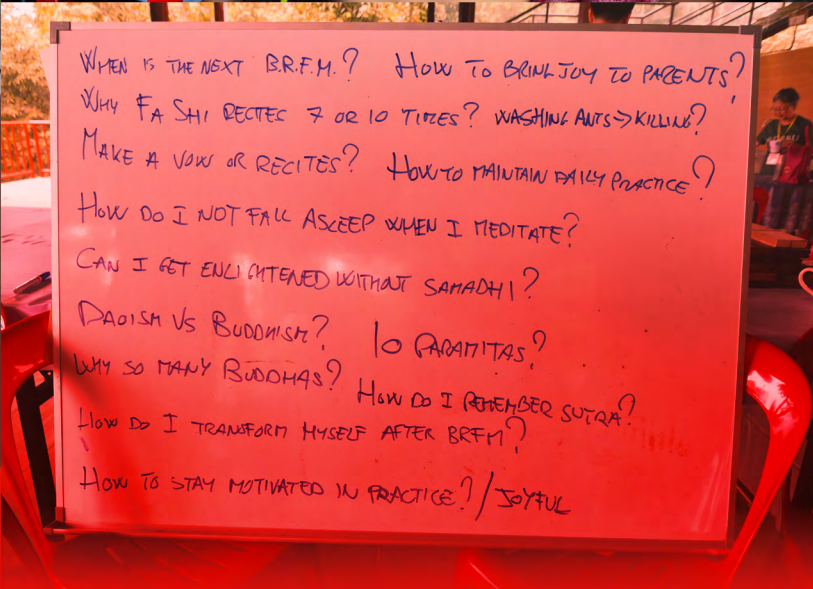 WHEN IS THE NEXT B.R.F.M.? HOW TO BRING JOY TO PARENTS?
WHY FA SHI RECITES 7 OR 10 TIMES? WASHING ANTS => KILLING?
MAKE A VOW OR RECITES? HOW TO MAINTAIN DAILY PRACTICE?
HOW DO I NOT FALL ASLEEP WHEN I MEDITATE?
CAN I GET ENLIGHTENED WITHOUT SAMADHI?
DAOISM VS BUDDHISM? 10 PARAMITAS?
WHY SO MANY BUDDHAS? HOW DO I REMEMBER SUTRA?
HOW DO I TRANSFORM MYSELF AFTER BRFM?
HOW TO STAY MOTIVATED IN PRACTICE? / JOYFUL